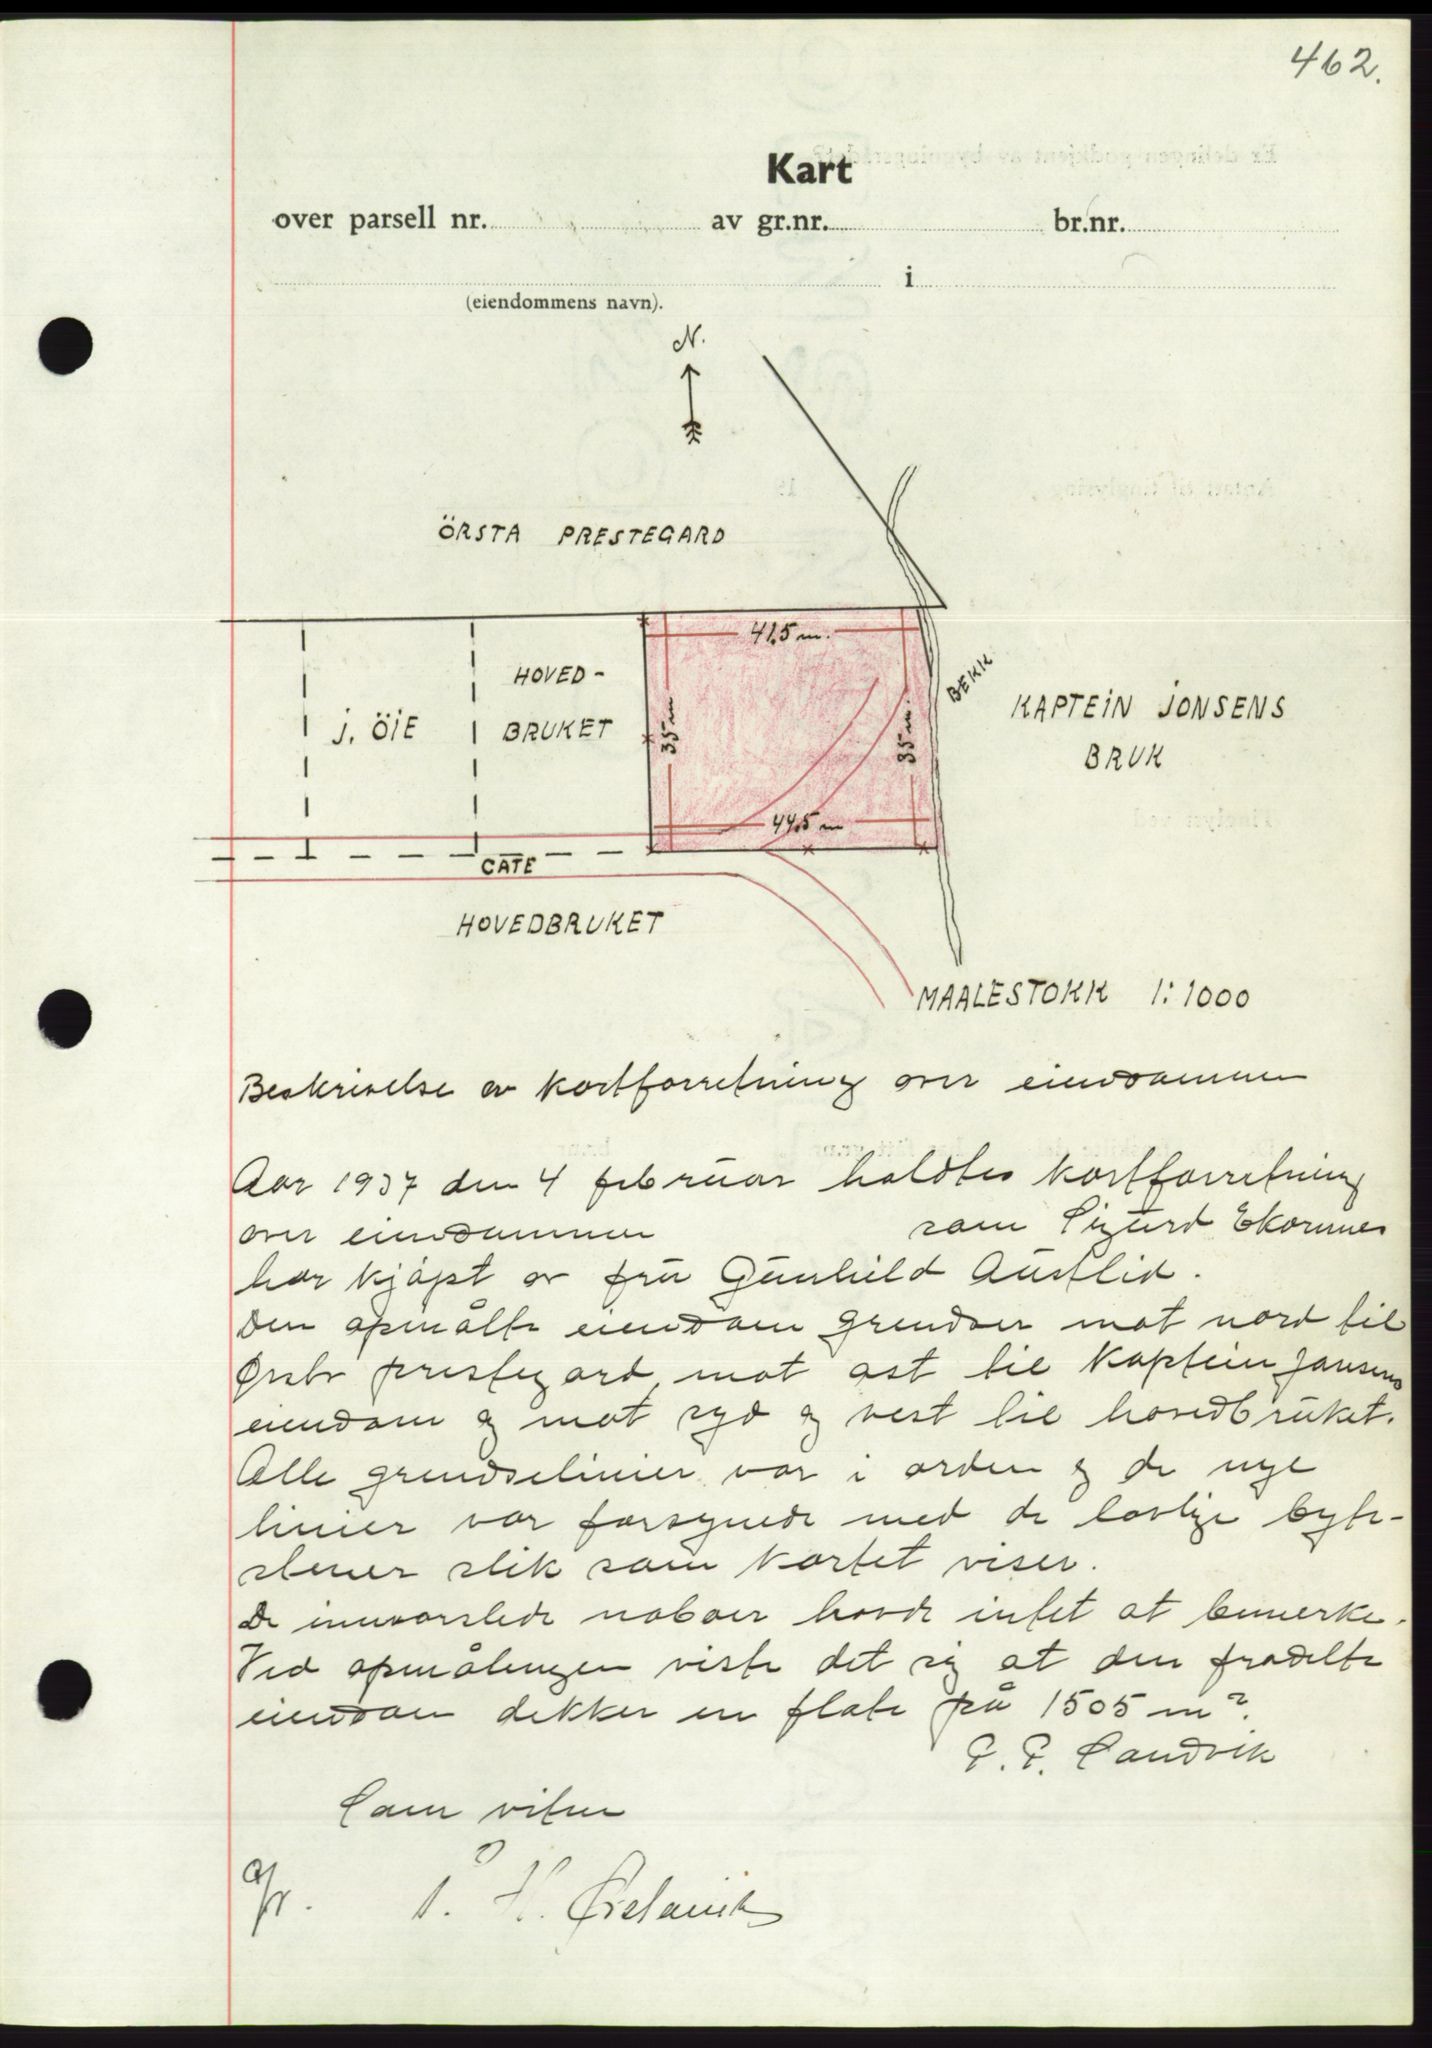 462.
Kart
over parsell nr. av gr.nr. br.nr.
i
(eiendommens navn).
N.
ÖRSTA PRESTEGARD
41,5 m.
HOVED-
BRUKET
J. ÖIE
35 m
35 m.
BEKK
KAPTEIN JONSENS
BRUK
44,5 m
GATE
HOVEDBRUKET
MAALESTOKK 1:1000
Beskrivelse av kartforretning over eiendommen
Aar 1937 den 4 februar holdtes kartforretning
over eiendommen som Sigurd Ekornes
har kjøpt av fru Gunhild Austlid.
Den opmålte eiendom grendser mot nord til
Ørsta prestegard, mot øst til Kaptein Jonsens
eiendom og mot syd og vest til hovedbruket.
Alle grendselinier var i orden og de nye
linier var forsynede med de lovlige byte-
stener slik som kartet viser.
De innvarslede naboer havde intet at bemerke.
Ved opmålingen viste det sig at den fradelte
eiendom dekker en flate på 1505 m².
P. P. Sandvik
Som vitne